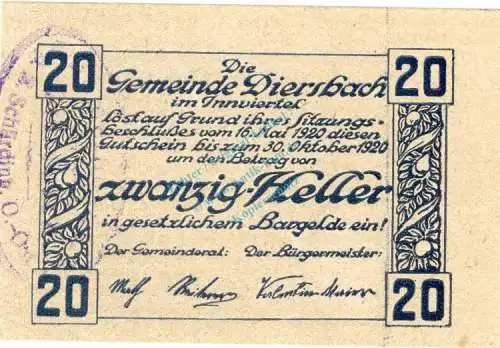 20 20
Die
Gemeinde Diersbach
im Innviertel
löst auf Grund ihres Sitzungs-
beschlußes vom 16. Mai 1920 diesen
Gutschein bis zum 30. Oktober 1920
um den Betrag von
zwanzig Heller
in gesetzlichem Bargelde ein!
Der Gemeinderat: Der Bürgermeister:
20 20